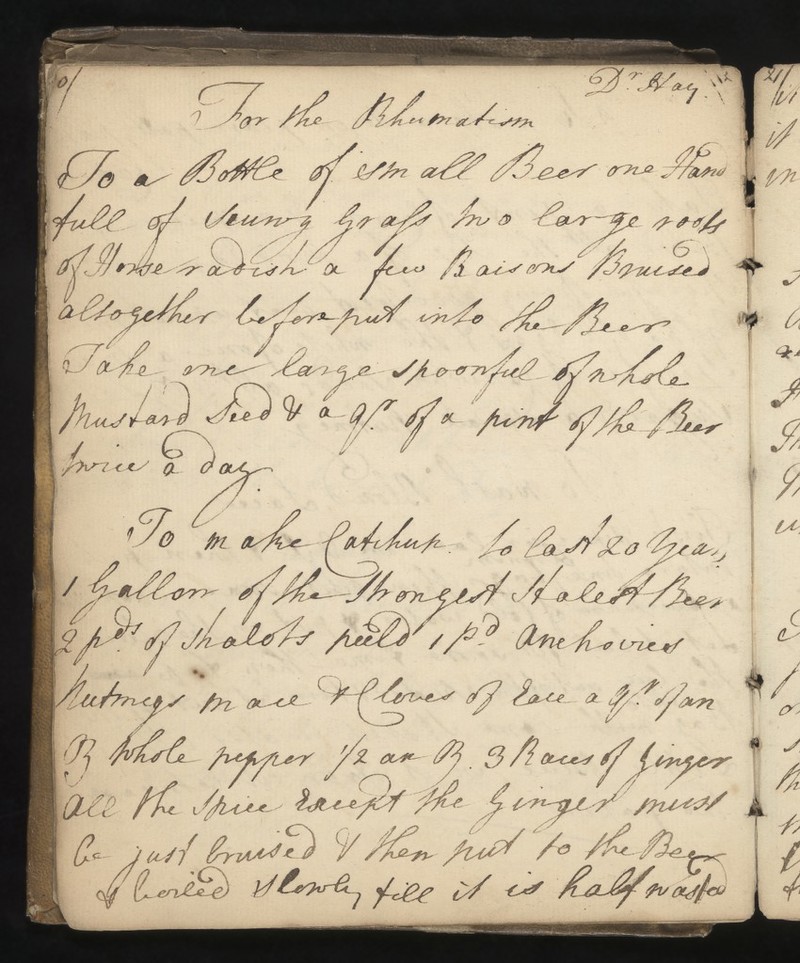 Dr Hay
For the Rhumatism
To a Bottle of small Beer one Hand
full of Scurvy Grass two large roots
of Horse radish a few Raisons Bruised
altogether before put into the Beer
Take one large spoonful of whole
Mustard Seed & a qr. of a pint of the Beer
twice a day
To make Catchup to last 20 Years
1 Gallon of the Strongest Stalest Beer
2 pds of Shalots peeld 1 pd Anchovies
Nutmegs mace & Cloves of Eace a qr. of an
℥ whole pepper 1/2 an ℥. 3 Races of Ginger
All the Spice Except the Ginger must
be just bruised & then put to the Beer
& boiled slowly till it is half wasted
it